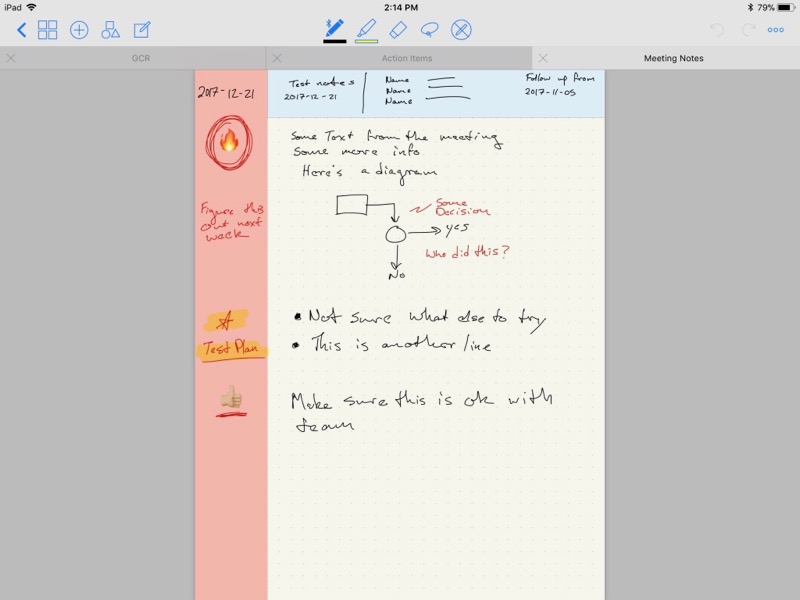 iPad
2:14 PM
79%
GCR
Action Items
Meeting Notes
2017-12-21
Test notes
2017-12-21
Name
Name
Name
Follow up from
2017-11-05
Some Text from the meeting
Some more info
Here's a diagram
Figure this
out next
week
Some
Decision
yes
Who did this?
No
• Not sure what else to try
• This is another line
Test Plan
Make sure this is ok with
team